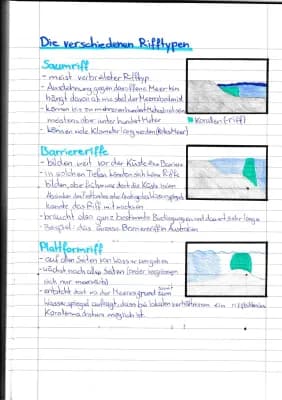 Die verschiedenen Rifftypen
Saumriff
- meist verbreiteter Rifftyp
- Ausdehnung gegen das offene Meer hin
hängt davon ab wie steil der Meeresboden ist
- können bis zu mehreren hundert Meter sein
meistens aber unter hundert Meter
- können viele Kilometer lang werden (Rotes Meer)
Korallen (-riff)
Barriereriffe
- bilden weit vor der Küste eine Barriere
- in solchen Tiefen könnten sich keine Riffe
bilden, aber früher war dort die Küste
konnte das Riff mit wachsen
- braucht also ganz bestimmte Bedingungen und dauert sehr lange
- Beispiel: das grosse Barriereriff in Australien
Plattformriff
- auf allen Seiten von Wasser umgeben
- wächst nach allen Seiten (andere
sich nur meerwärts)
- entsteht dort wo der Meeresgrund zum
Wasserspiegel aufragt, dass bei lokalen ein
Korallenwachstum möglich ist.